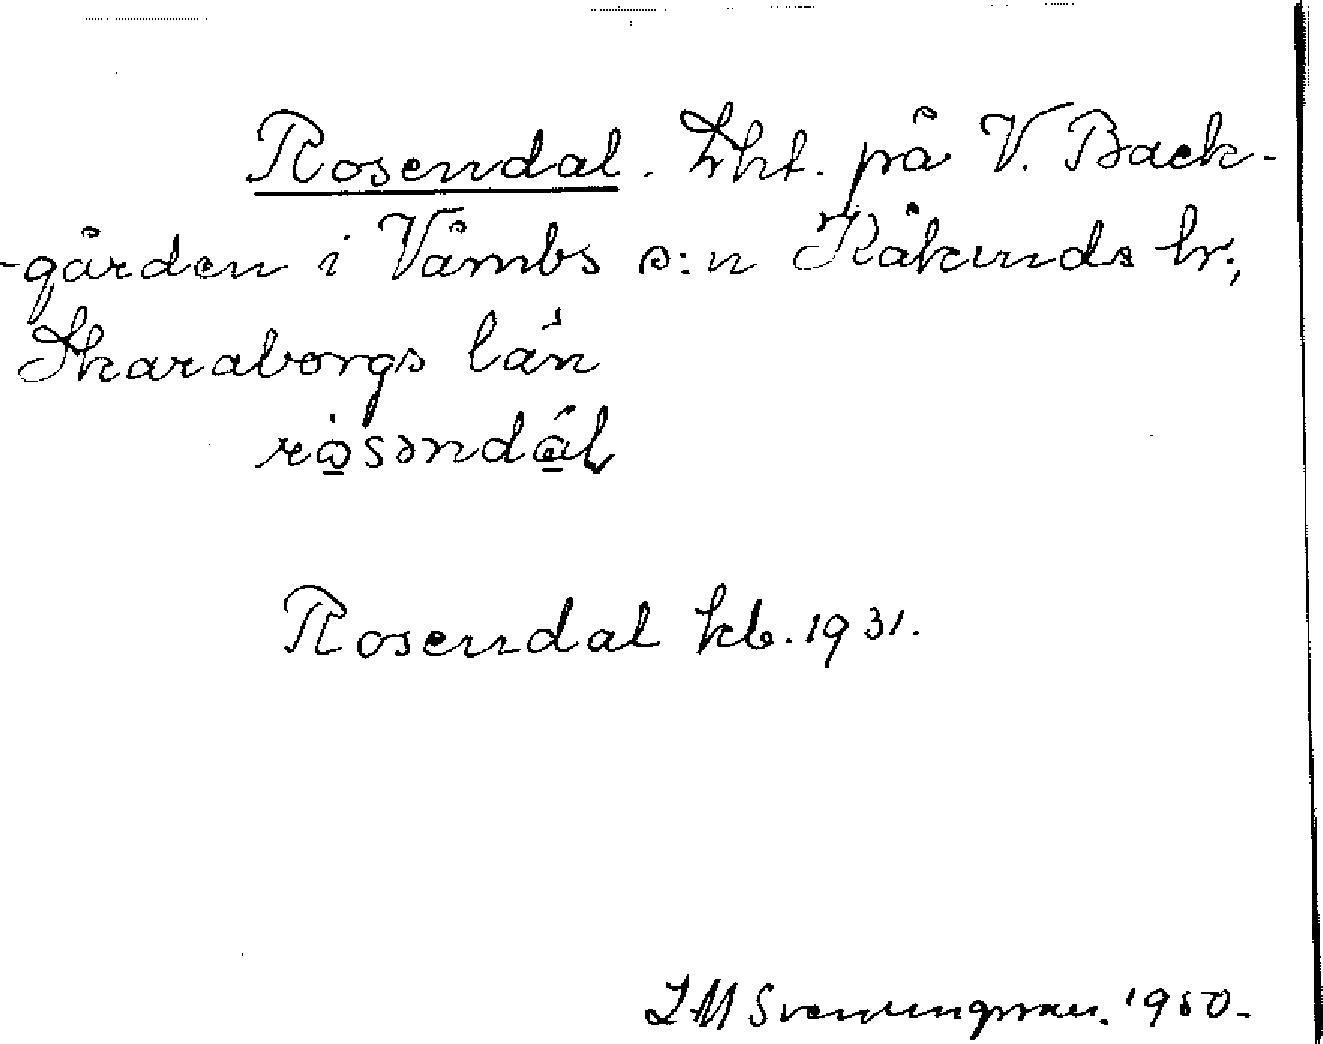 Rosendal. Lht. på V. Back-
-gården i Våmbs s:n Kåkinds hr.,
Skaraborgs län
rosəndàl
Rosendal kb. 1931.
J M Svenungsson. 1950.